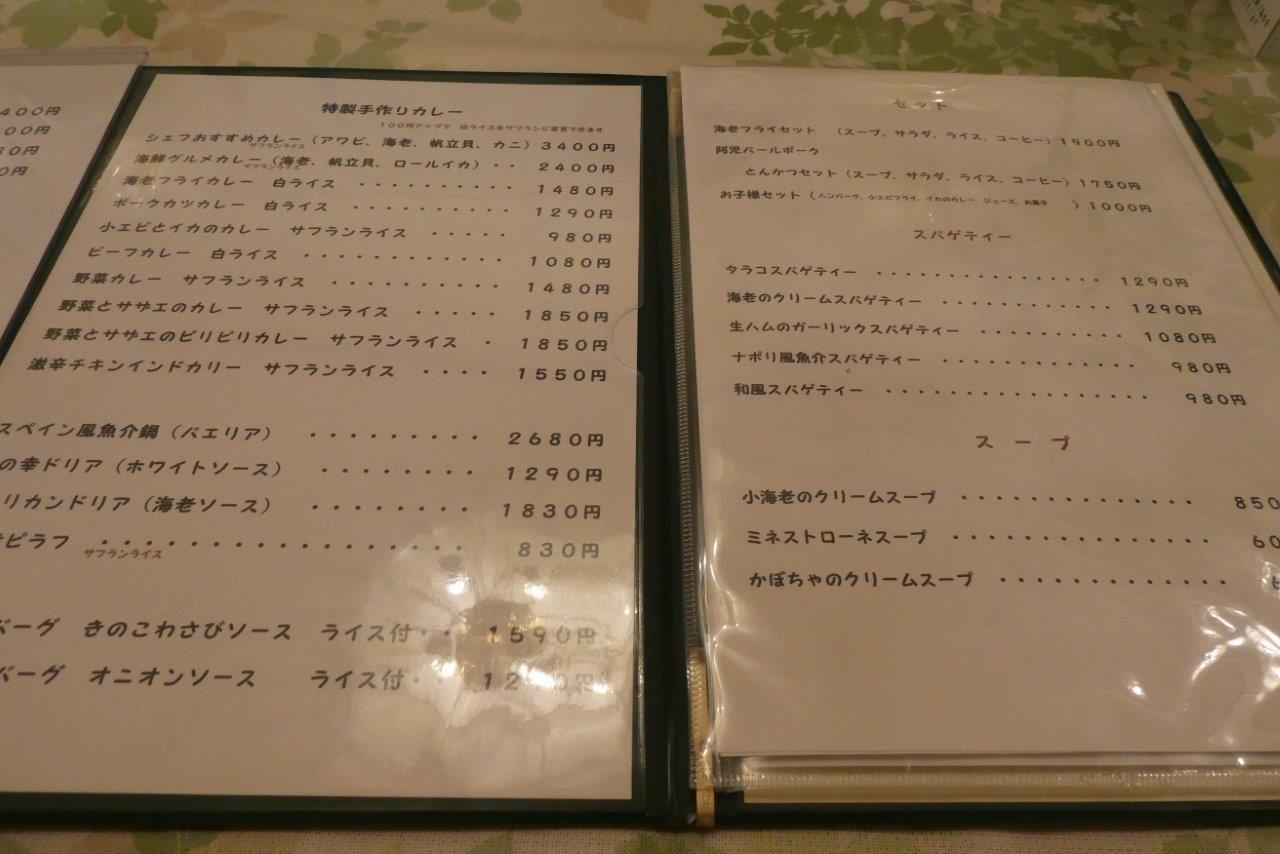 400円
00円
80円
0円
特製手作りカレー
100円アップで 白ライスをサフランに変更できます
シェフおすすめカレー（アワビ、海老、帆立貝、カニ） 3400円
サフランライス
海鮮グルメカレー（海老、帆立貝、ロールイカ）・・ 2400円
サフランライス
海老フライカレー 白ライス ・・・・・・・・・・ 1480円
ポークカツカレー 白ライス ・・・・・・・・・・ 1290円
小エビとイカのカレー サフランライス ・・・・・ 980円
ビーフカレー 白ライス ・・・・・・・・・・・・ 1080円
野菜カレー サフランライス ・・・・・・・・・・ 1480円
野菜とサザエのカレー サフランライス ・・・・・ 1850円
野菜とサザエのピリピリカレー サフランライス ・ 1850円
激辛チキンインドカリー サフランライス ・・・・ 1550円
スペイン風魚介鍋（パエリア） ・・・・・・・・・ 2680円
の幸ドリア（ホワイトソース） ・・・・・・・・ 1290円
リカンドリア（海老ソース） ・・・・・・・・ 1830円
ピラフ ・・・・・・・・・・・・・・ 830円
サフランライス
バーグ きのこわさびソース ライス付・・ 1590円
バーグ オニオンソース ライス付・・
セット
海老フライセット （スープ、サラダ、ライス、コーヒー） 1900円
阿児パールポーク
とんかつセット（スープ、サラダ、ライス、コーヒー） 1750円
お子様セット（ハンバーグ、小エビフライ、イカのカレー、ジュース、お菓子 ）1000円
スパゲティー
タラコスパゲティー ・・・・・・・・・・・・・・・・・ 1290円
海老のクリームスパゲティー ・・・・・・・・・・・・・ 1290円
生ハムのガーリックスパゲティー ・・・・・・・・・・ 1080円
ナポリ風魚介スパゲティー ・・・・・・・・・・・・ 980円
和風スパゲティー ・・・・・・・・・・・・・・・・ 980円
スープ
小海老のクリームスープ ・・・・・・・・・・・・・ 850
ミネストローネスープ ・・・・・・・・・・・・・ 60
かぼちゃのクリームスープ ・・・・・・・・・・・